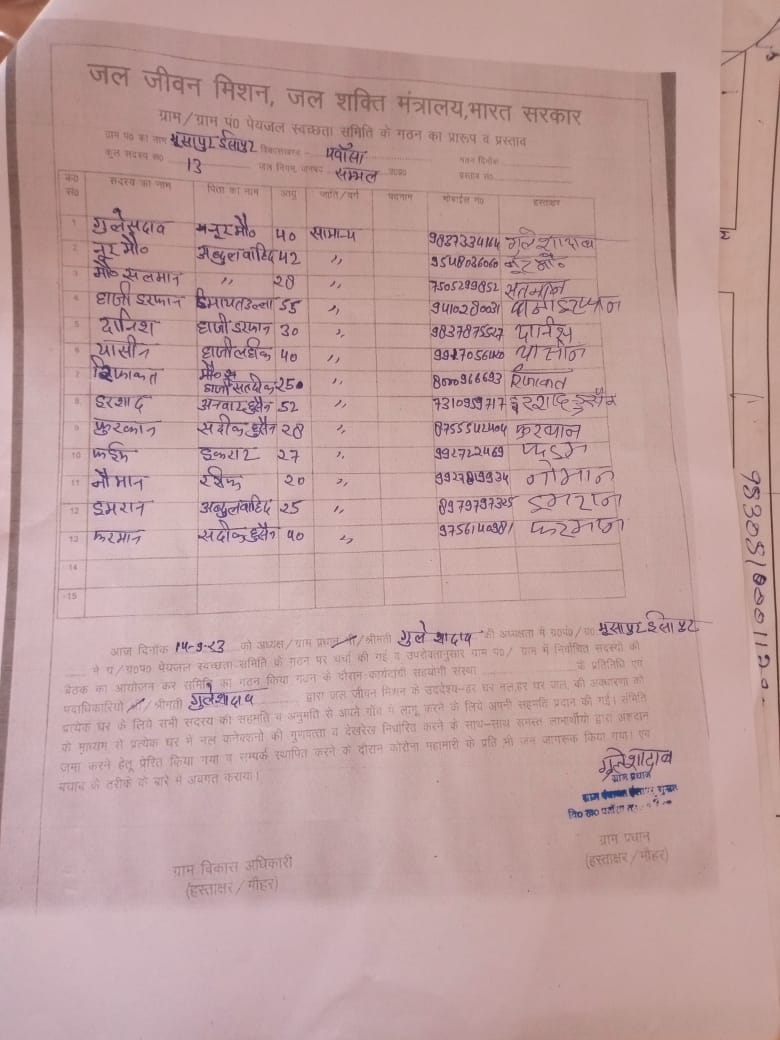 जल जीवन मिशन, जल शक्ति मंत्रालय,भारत सरकार
ग्राम/ग्राम पं0 पेयजल स्वच्छता समिति के गठन का प्रारूप व प्रस्ताव
ग्राम पं0 का नाम मूसापुर ईसापुर विकासखण्ड पवांसा गठन दिनाँक
कुल सदस्य सं0 13 जल निगम, जनपद सम्भल उ0प्र0 प्रस्ताव सं0
क्र0 सं0 सदस्य का नाम पिता का नाम आयु जाति/वर्ग पदनाम मोबाईल नं0 हस्ताक्षर
1 गुलेसदाव नूर मौ० 40 सामान्य 9837334164 गुलेशादाब
2 नूर मौ० अब्दुल वाहिद 42 ,, 9548036060 नूर मौ०
3 मौ० सलमान ,, 28 ,, 7505299852 सलमान
4 हाजी इरफान 55 ,, 9410280031
5 दानिश हाजी इरफान 30 ,, 9837875527 दानिश
6 यासीन हाजी लईक 40 ,, यासीन
7 रिफाकत ,, 8000966693 रिफाकत
8 इरशाद अनवार हुसैन 52 ,, 7310959717 इरशाद हुसैन
9 फुरकान सदीक हुसैन 28 ,, 8755542404 फुरकान
10 27 ,, 992722469
11 नौमान रफीक 20 ,, 9927819934 नोमान
12 इमरान अब्दुल वाहिद 25 ,, 8979797325 इमरान
13 फरमान सदीक हुसैन 40 ,, 9756140981 फरमान
14
15
आज दिनाँक 14-9-23 को अध्यक्ष/ग्राम प्रधान श्री/श्रीमती गुले शादाब की अध्यक्षता में ग्रा0पं0/ग्रा0 मूसापुर ईसापुर
में ग्रा/ग्रा0पं0 पेयजल स्वच्छता समिति के गठन पर चर्चा की गई व उपरोक्तानुसार ग्राम पं0/ ग्राम में निर्वाचित सदस्यों की
बैठक का आयोजन कर समिति का गठन किया गया गठन के दौरान कार्यदायी सहयोगी संस्था के प्रतिनिधि एवं
पदाधिकारियों श्री/ श्रीमती गुलेशादाब द्वारा जल जीवन मिशन के उददेश्य-हर घर नल,हर घर जल, की अवधारणा को
प्रत्येक घर के लिये सभी सदस्य की सहमति व अनुमति से अपने गाँव में लागू करने के लिये अपनी सहमति प्रदान की गई। समिति
के माध्यम से प्रत्येक घर में नल कनेक्शनों की गुणवत्ता व देखरेख निर्धारित करने के साथ-साथ समस्त लाभार्थीयो द्वारा अंशदान
जमा करने हेतू प्रेरित किया गया व सम्पर्क स्थापित करने के दौरान कोरोना महामारी के प्रति भी जन जागरूक किया गया। एवं
बचाव के तरीके के बारे में अवगत कराया।
गुलेशादाब
ग्राम प्रधान
ग्राम विकास अधिकारी
(हस्ताक्षर/मोहर)
ग्राम प्रधान
(हस्ताक्षर/मोहर)